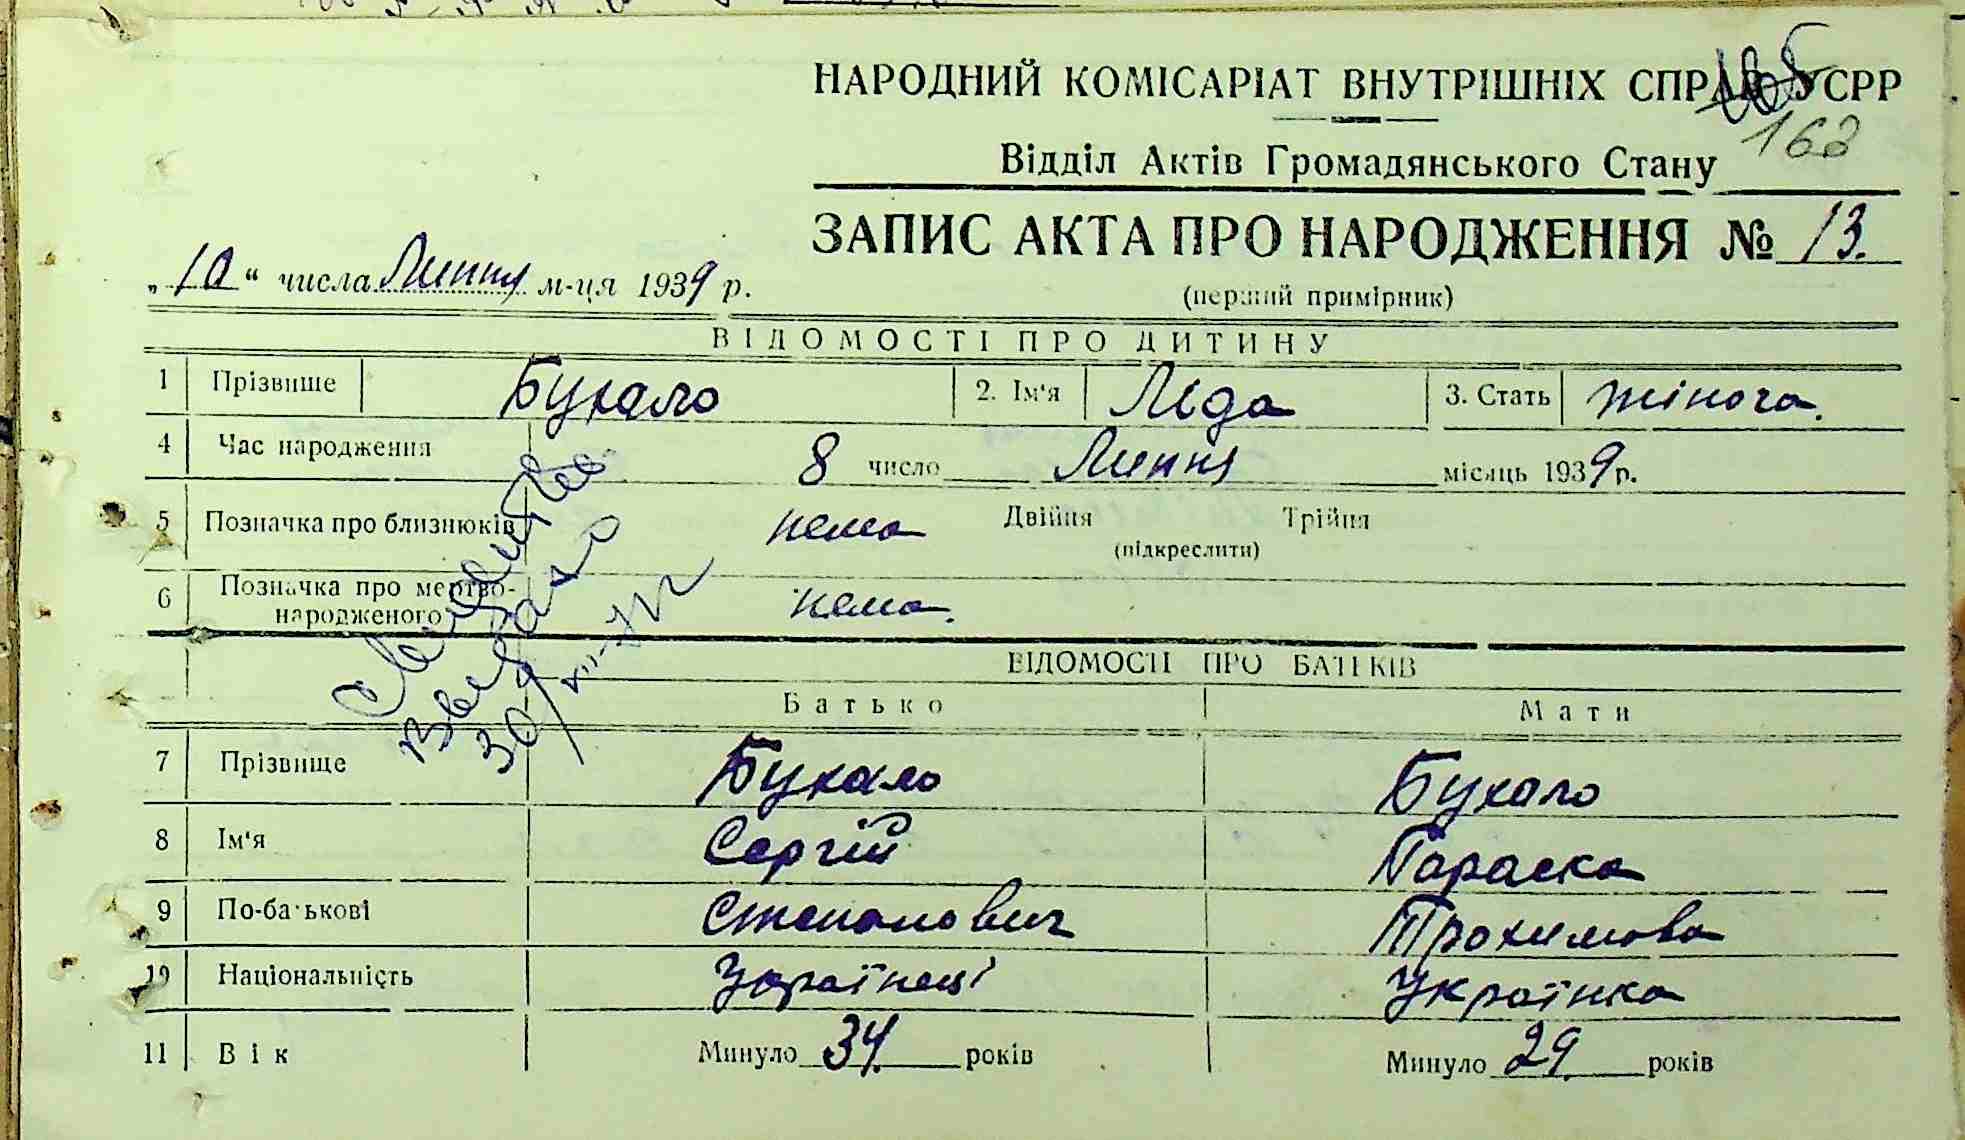 НАРОДНИЙ КОМІСАРІАТ ВНУТРІШНІХ СПРАВ УСРР
163
Відділ Актів Громадянського Стану
ЗАПИС АКТА ПРО НАРОДЖЕННЯ № 13.
„10“ числа Липня м-ця 1939 р.
(перший примірник)
ВІДОМОСТІ ПРО ДИТИНУ
1 Прізвище Букало 2. Ім'я Ліда 3. Стать жіноча.
4 Час народження 8 число Липня місяць 1939 р.
5 Позначка про близнюків нема Двійня Трійня
(підкреслити)
6 Позначка про мертво-
народженого нема.
ВІДОМОСТІ ПРО БАТЬКІВ
Батько Мати
7 Прізвище Букало Букало
8 Ім'я Сергій Параска
9 По-батькові Степанович Трохимовна
10 Національність Українці Українка
11 Вік Минуло 34 років Минуло 29 років